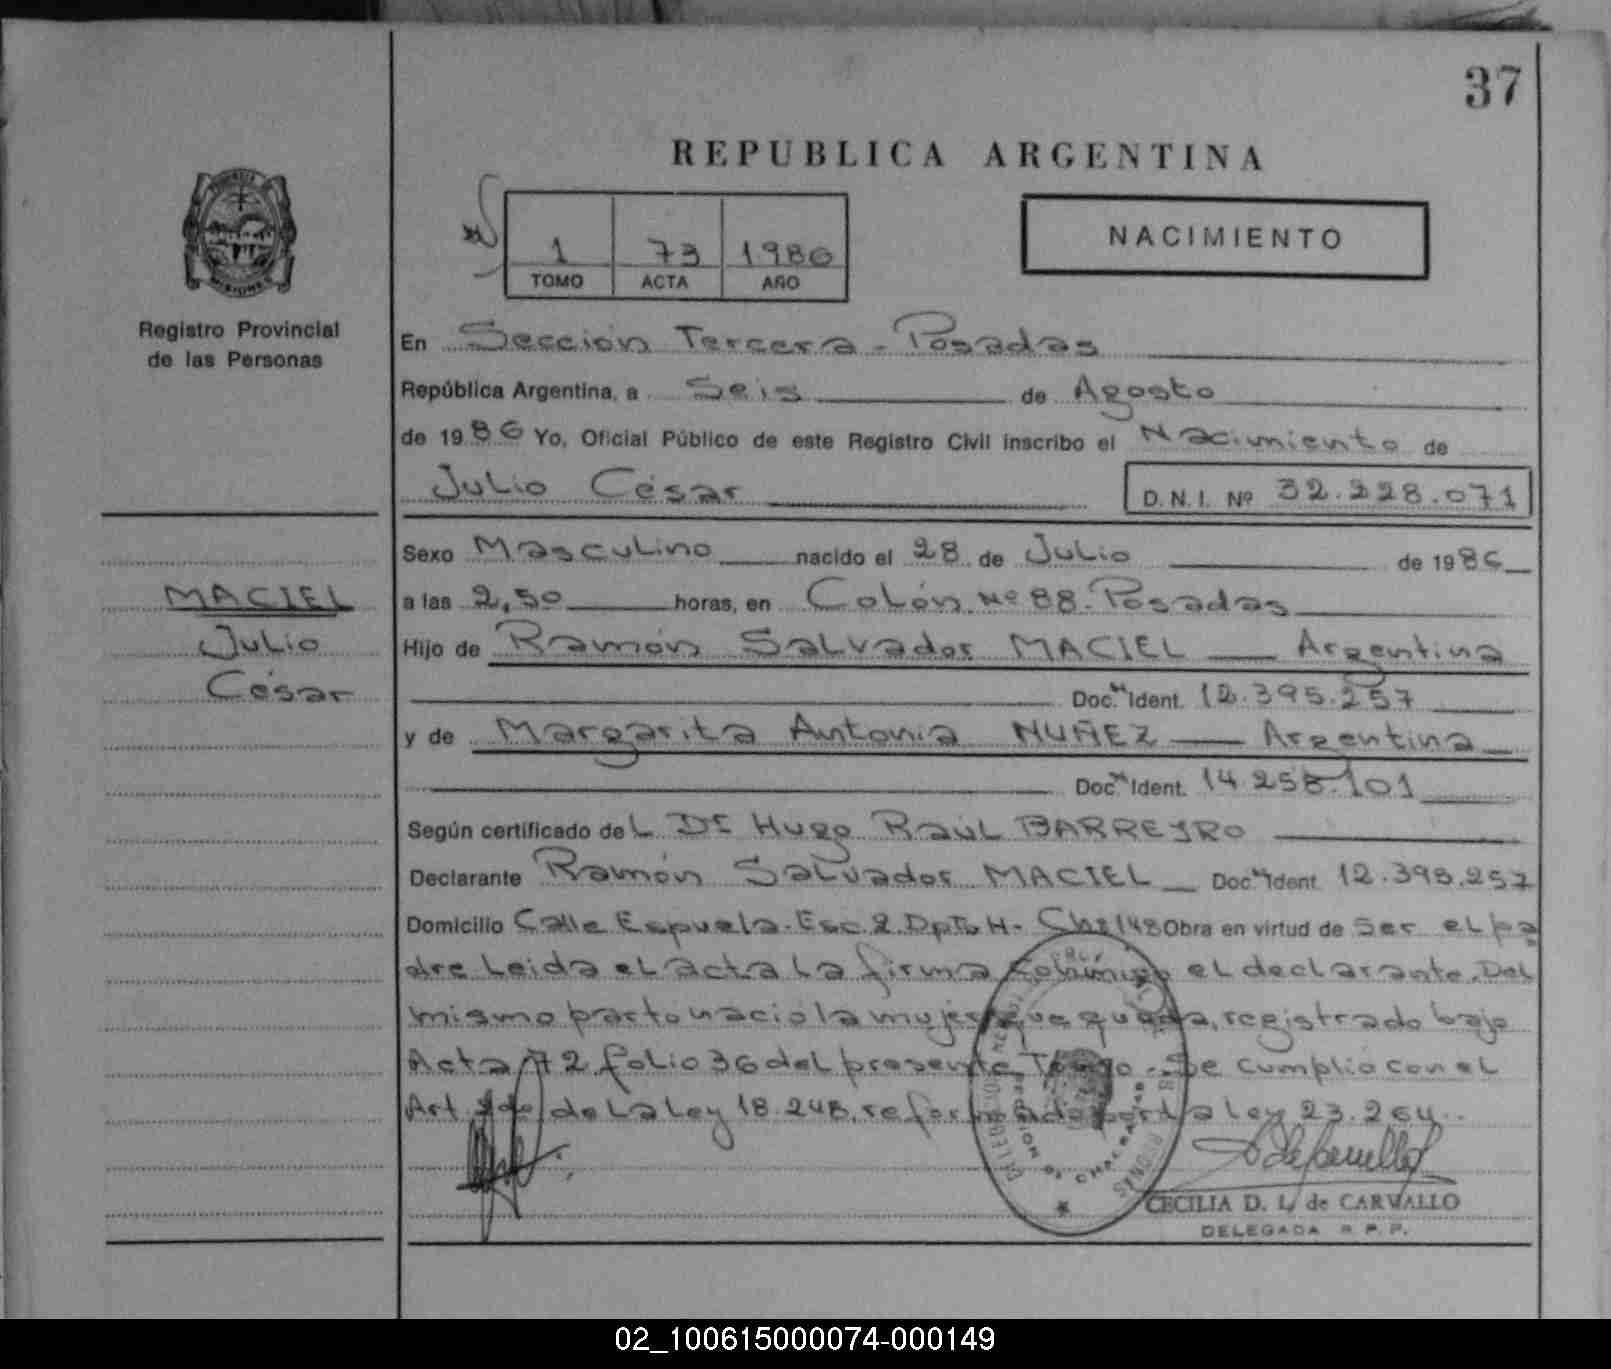 37
REPUBLICA ARGENTINA
1 73 1986
TOMO ACTA AÑO
NACIMIENTO
MISIONES
Registro Provincial
de las Personas
En Sección Tercera - Posadas
República Argentina, a Seis de Agosto
de 1986 Yo, Oficial Público de este Registro Civil inscribo el Nacimiento de
Julio César D.N.I. Nº 32.228.071
Sexo Masculino nacido el 28 de Julio de 1986
MACIEL
Julio
César
a las 2,50 horas, en Colón Nº 88. Posadas
Hijo de Ramón Salvador MACIEL Argentina
Doc. Ident. 12.395.257
y de Margarita Antonia NUÑEZ Argentina
Doc. Ident. 14.258.101
Según certificado del Dr Hugo Raúl BARREYRO
Declarante Ramón Salvador MACIEL Doc. Ident. 12.395.257
Domicilio Calle Espuela. Esc. 2. Dpto H- Ch 148 Obra en virtud de Ser el pa
dre Leida el acta la firma conmigo el declarante. Del
mismo parto nació la mujer que queda, registrado bajo
Acta 72 folio 36 del presente Tomo.- Se cumplió con el
Art. 2do de la Ley 18.248, reformada por la Ley 23.264..
CECILIA D. L. de CARVALLO
DELEGADA R. P. P.
02_100615000074-000149